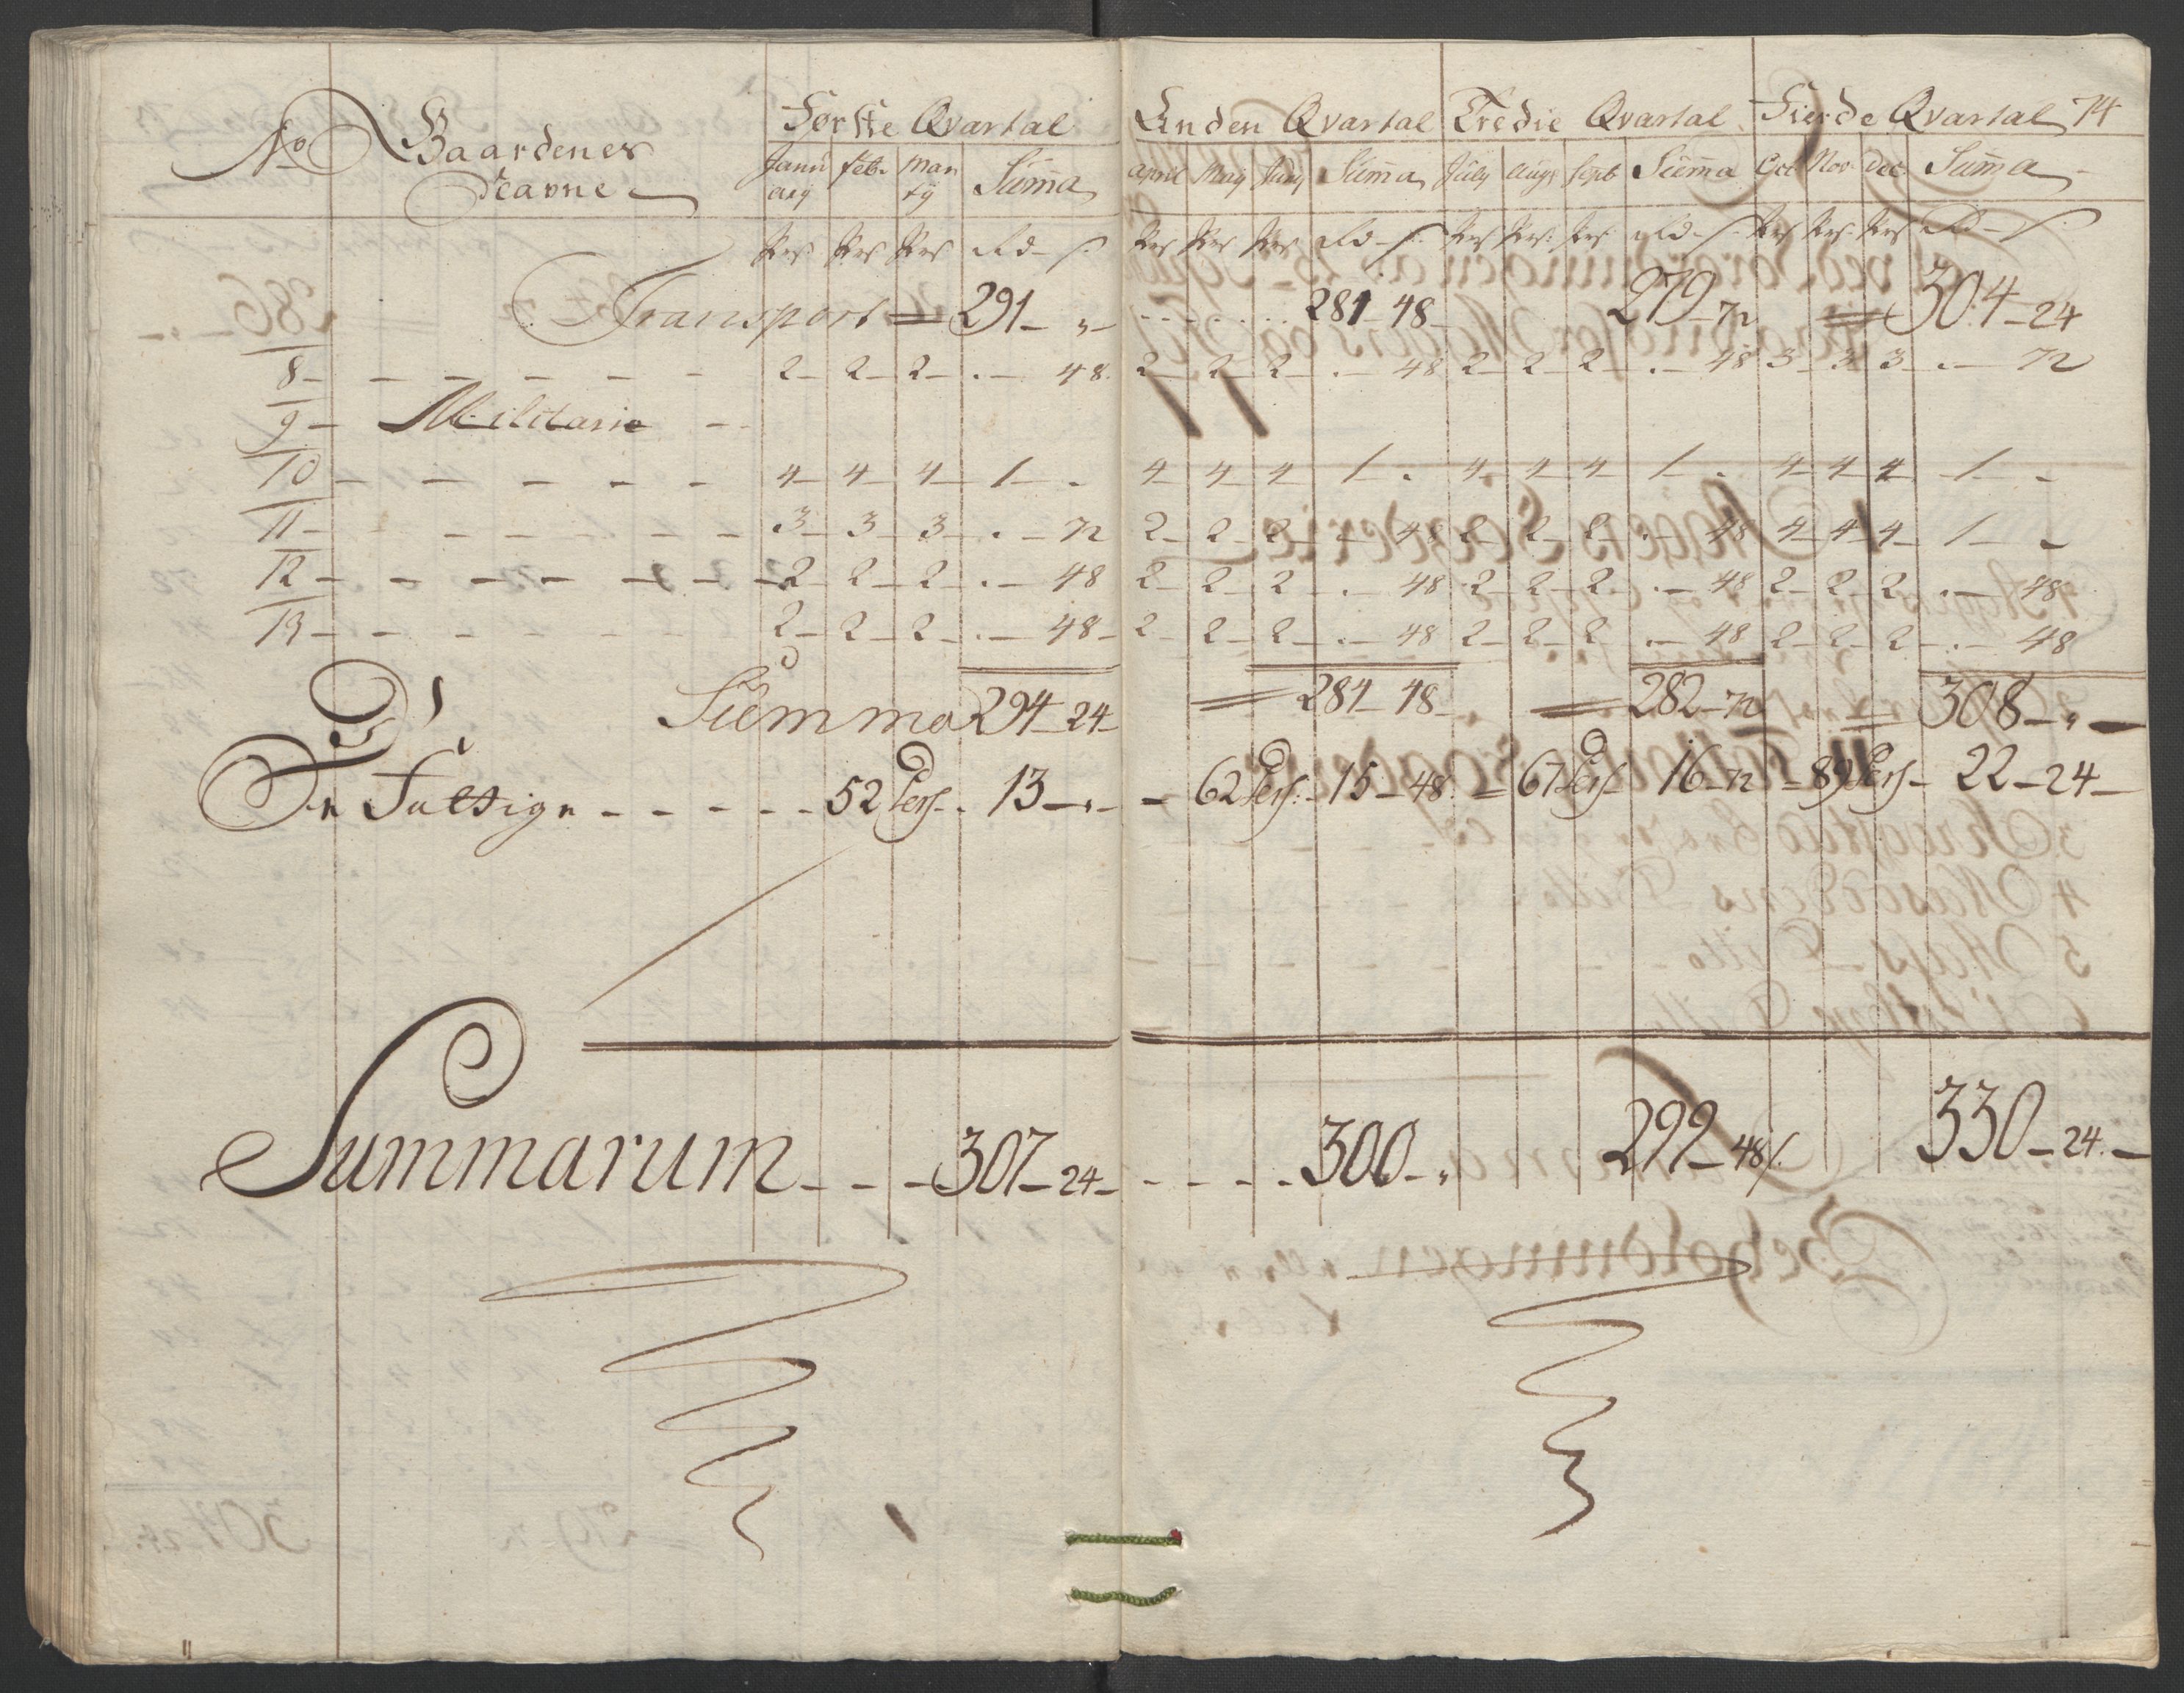 No Gaardenes Første Qvartal Anden Qvartal Tredie Qvartal Fierde Qvartal 74
Navne Janu ary feb. Mar ty Summa April May Juny Summa July Augs Sept Summa Oct Nov Dec Summa
Pers Pers Pers Rd - s. Pers Pers Pers Rd - s. Pers Pers. Pers Rd - s. Pers Pers. Pers Rd - s.
Transport = 291 - „ - 281 - 48 - 279 - 72 = 304 - 24
8 - 2 - 2 - 2 - . - 48. 2 - 2 - 2 - . - 48 2 - 2 - 2 - . - 48 3 - 3 3 - . - 72
9 - Militarie -
10 - 4 - 4 - 4 - 1 - . 4 - 4 - 4 - 1 - . 4 - 4 - 4 - 1 - . 4 - 4 - 4 - 1 - -
11 - 3 - 3 - 3 - . - 72 2 - 2 - 2 - . - 48 2 - 2 - 2 - . - 48 4 - 4 - 4 - 1 - -
12 - 2 - 2 - 2 - . - 48 2 - 2 - 2 - . - 48 2 - 2 - 2 - . - 48 2 - 2 - 2 - . - 48
13 - 2 - 2 - 2 - . - 48 - 2 - 2 - 2 - . - 48 2 - 2 - 2 - . - 48 2 - 2 - 2 - . - 48
Summa 294 - 24 - = 284 - 48 - = 282 - 72 = 308 - „ -
De Fattige - - - - - 52 Pers. - 13 - „ - - 62 Pers: - 15 - 48. = 67 Pers - 16 - 72 - 89 Pers - 22 - 24 -
Summarum - - - 307 - 24 - - - - - 300 - „ 299 - 48 s. 330 - 24. -